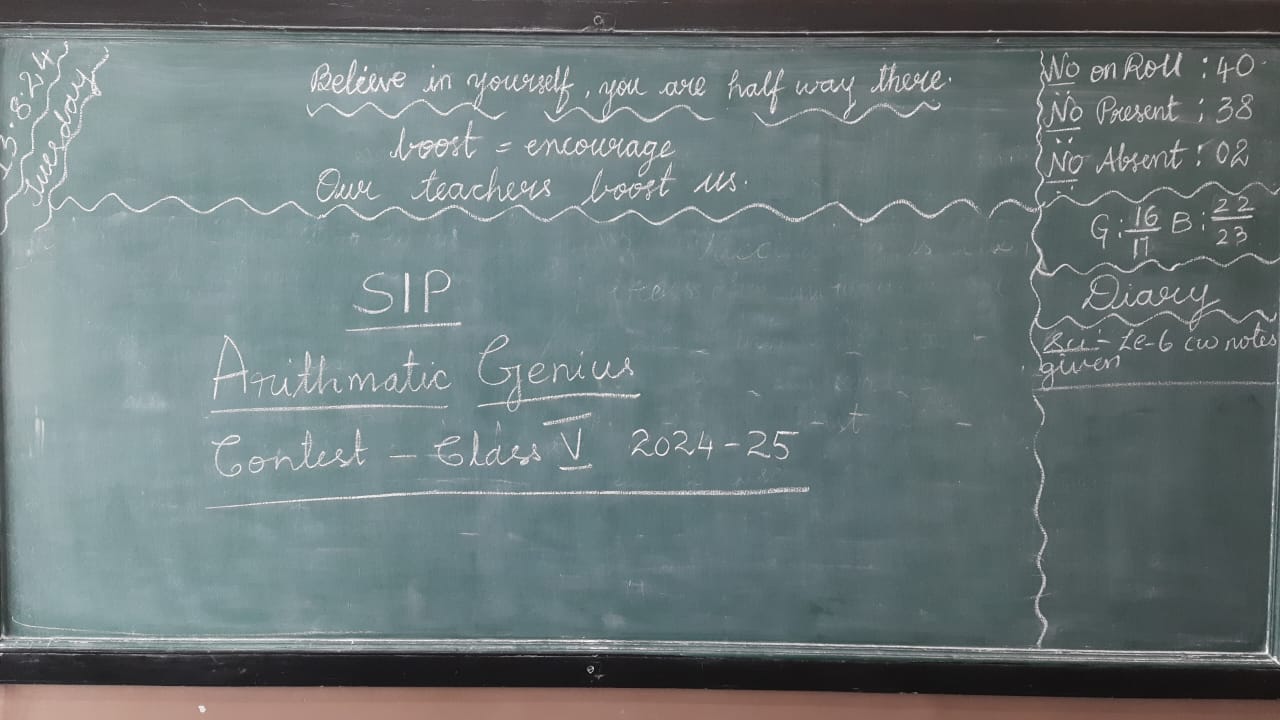 3.8.24
Tuesday
Believe in yourself, you are half way there.
boost = encourage
Our teachers boost us.
No on Roll : 40
No Present : 38
No Absent : 02
G : 16/17 B : 22/23
Diary
Sci - Le-6 CW notes
given
SIP
Arithmatic Genius
Contest - Class V 2024-25